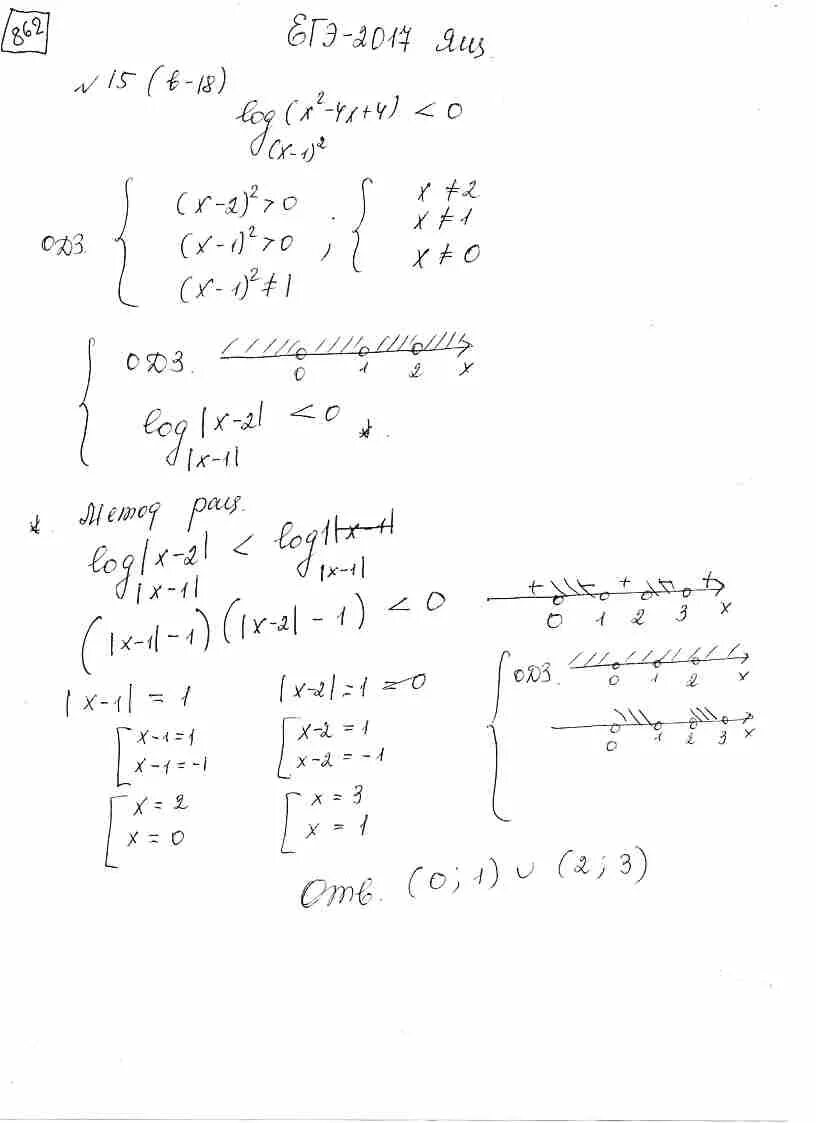 862
ЕГЭ-2017 Ящ.
№ 15 (в-18)
log_{(x-1)^2} (x^2-4x+4) < 0
ОДЗ. { (x-2)^2 > 0 ; { x ≠ 2
(x-1)^2 > 0 , x ≠ 1
(x-1)^2 ≠ 1 x ≠ 0
{ ОДЗ. 0 1 2 x
log_{|x-1|} |x-2| < 0 *.
* Метод рац.
log_{|x-1|} |x-2| < log_{|x-1|} 1
(|x-1| - 1)(|x-2| - 1) < 0
+ - + - + 0 1 2 3 x
|x-1| = 1 |x-2| = 1 = 0
[ x-1 = 1 [ x-2 = 1
x-1 = -1 x-2 = -1
[ x = 2 [ x = 3
x = 0 x = 1
{ ОДЗ. 0 1 2 x
0 1 2 3 x
Отв. (0; 1) ∪ (2; 3)